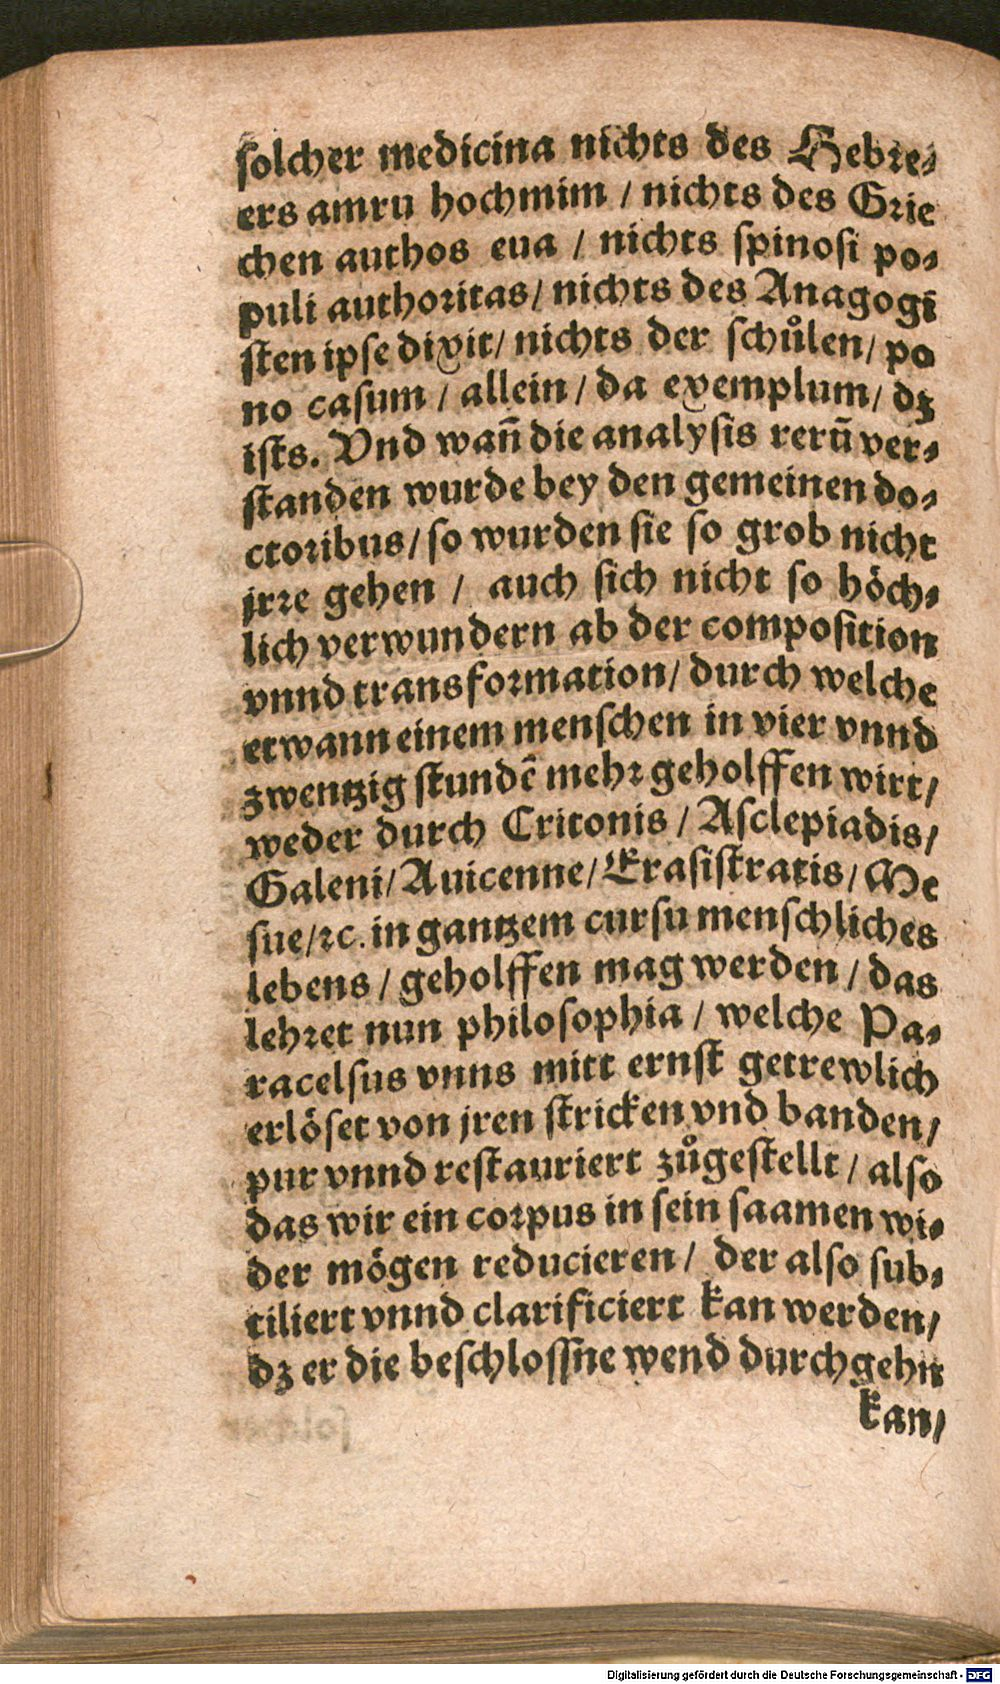 ſolcher medicina nichts des Hebre⸗
ers amru hochmim / nichts des Grie
chen authos eua / nichts spinosi po⸗
puli authoritas/ nichts des Anagogi
ſten ipse dixit/ nichts der schůlen/ po
no casum / allein / da exemplum/ dz
iſts. Vnd wañ die analysis rerū ver⸗
ſtanden wurde bey den gemeinen do⸗
ctoribus/ so wurden sie so grob nicht
jrre gehen / auch sich nicht so höch⸗
lich verwundern ab der composition
vnnd transformation/ durch welche
etwann einem menschen in vier vnnd
zwentzig ſtundē mehr geholffen wirt/
weder durch Critonis / Asclepiadis/
Galeni/ Auicenne/ Erasiſtratis/ Me
sue/ ꝛc. in gantzem cursu menschliches
lebens / geholffen mag werden / das
lehret nun philosophia / welche Pa⸗
racelsus vnns mitt ernſt getrewlich
erlöset von jren ſtricken vnd banden/
pur vnnd reſtauriert zůgeſtellt / also
das wir ein corpus in sein saamen wi⸗
der mögen reducieren / der also sub⸗
tiliert vnnd clarificiert kan werden/
dz er die beschlossne wend durchgehn
kan/
Digitalisierung gefördert durch die Deutsche Forschungsgemeinschaft - DFG